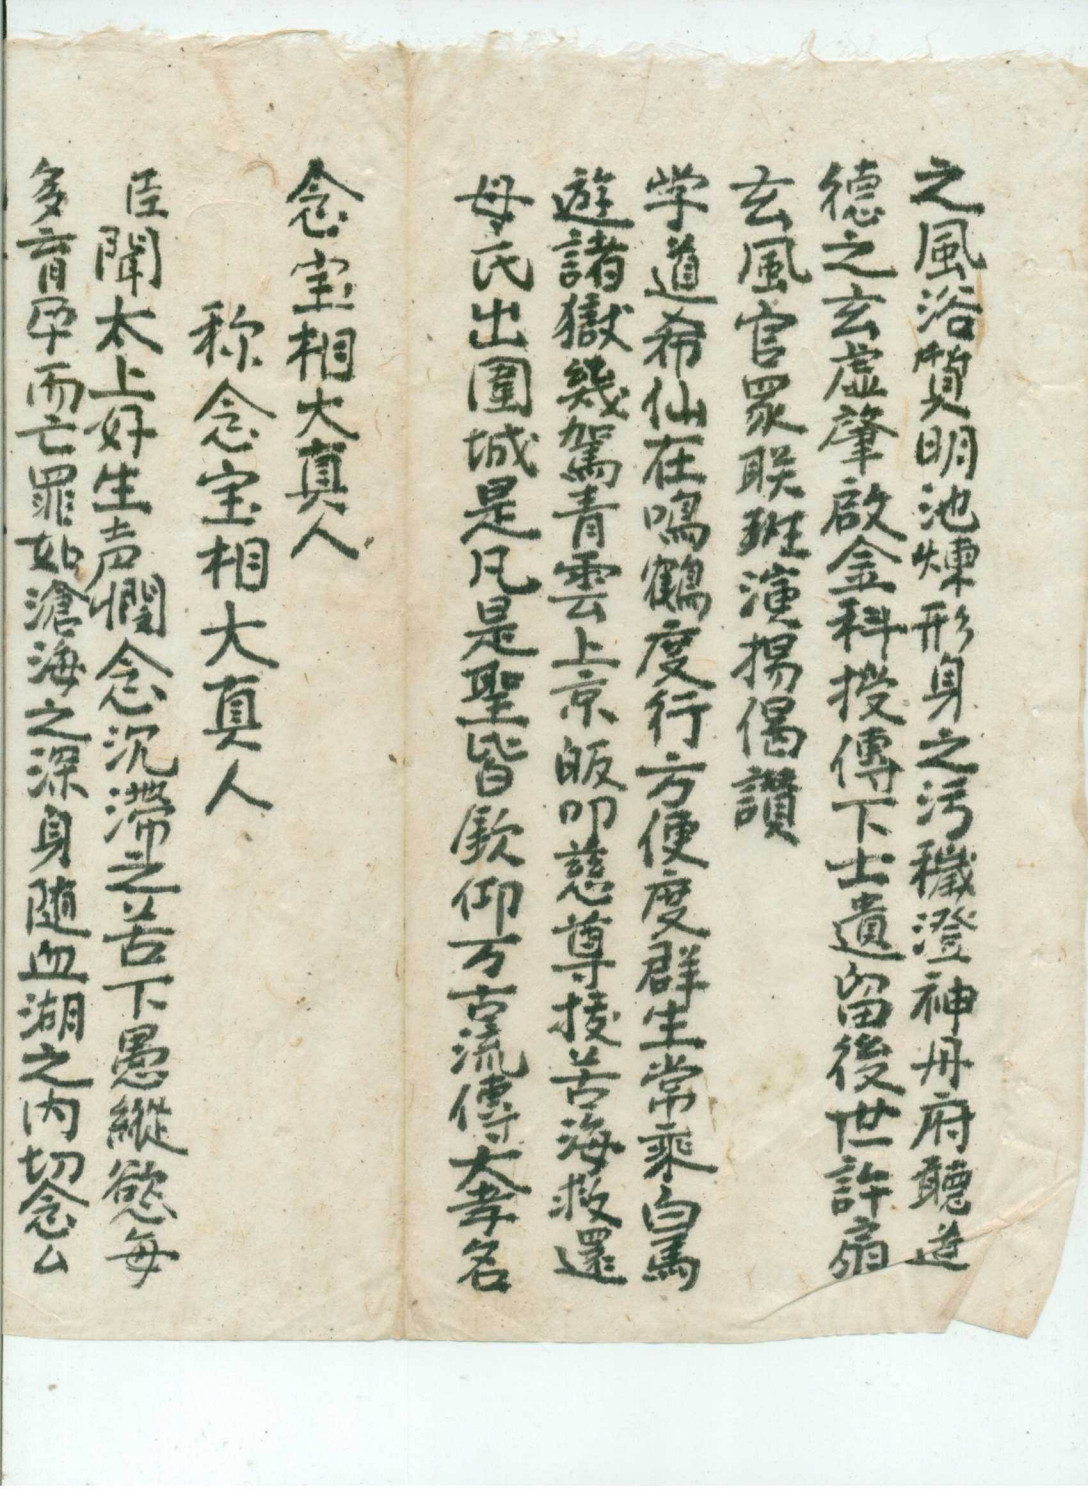 之風浴質明池煉形身之污穢澄神丹府聽道
德之玄虛肇啟金科授傳下士遺留後世許扇
玄風官眾联班演揚偈讚
学道希仙在鳴鶴度行方便度群生常乘白馬
遊諸獄幾駕青雲上京皈叩慈尊接苦海救還
母氏出圍城是凡是聖皆欽仰万古流傳大孝名
念宝相大真人
称念宝相大真人
臣聞太上好生声憫念沉滯之苦下愚縱慾每
多育孕而亡罪如滄海之深身随血湖之内切念厶